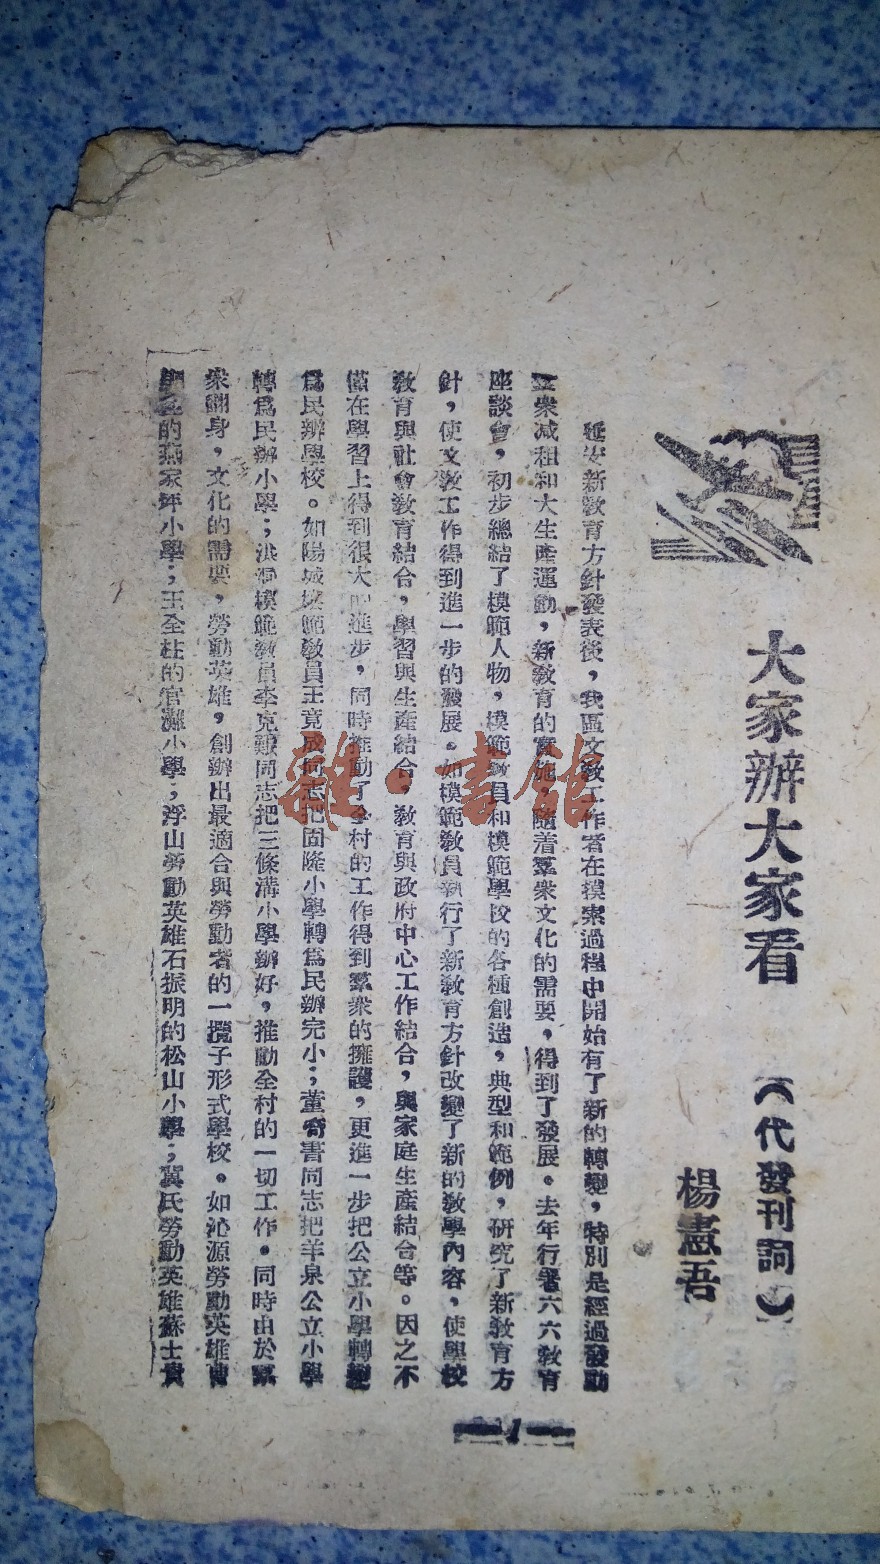 大家辦大家看
（代發刊詞）
楊憲吾
延安新敎育方針發表後，我區文敎工作者在摸索過程中開始有了新的轉變，特別是經過發動
羣衆減租和大生產運動，新敎育的實施，隨着羣衆文化的需要，得到了發展。去年行署六六敎育
座談會，初步總結了模範人物，模範敎員和模範學校的各種創造，典型和範例，硏究了新敎育方
針，使文敎工作得到進一步的發展。如模範敎員執行了新敎育方針改變了新的敎學內容，使學校
敎育與社會敎育結合，學習與生產結合，敎育與政府中心工作結合，與家庭生產結合等。因之不
僅在學習上得到很大的進步，同時推動了全村的工作得到羣衆的擁護，更進一步把公立小學轉變
爲民辦學校。如陽城模範敎員王竟成同志把固隆小學轉爲民辦完小；董 書同志把羊泉公立小學
轉爲民辦小學；洪洞模範敎員李克艱同志把三條溝小學辦好，推動全村的一切工作。同時由於羣
衆翻身，文化的需要，勞動英雄，創辦出最適合與勞動者的一攬子形式學校。如沁源勞動英雄
的燕家坪小學；王全柱的官灘小學；浮山勞動英雄石振明的松山小學；冀氏勞動英雄蘇士貴
1
雜·書館